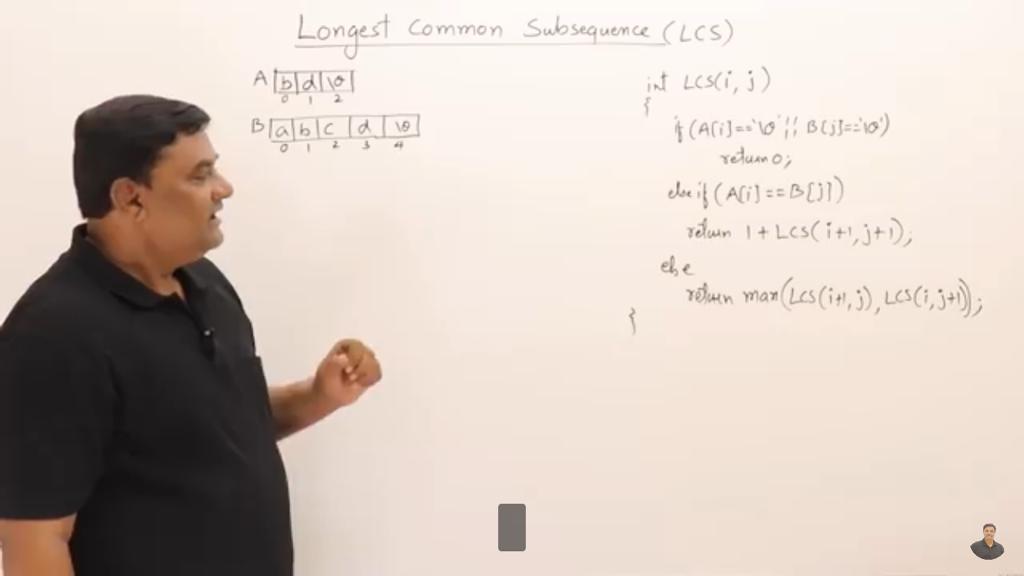 Longest Common Subsequence (LCS)
A b d \0
0 1 2
B a b c d \0
0 1 2 3 4
int LCS(i, j)
{
if (A[i]=='\0' || B[j]=='\0')
return 0;
else if (A[i]==B[j])
return 1 + LCS(i+1, j+1);
else
return max(LCS(i+1, j), LCS(i, j+1));
}